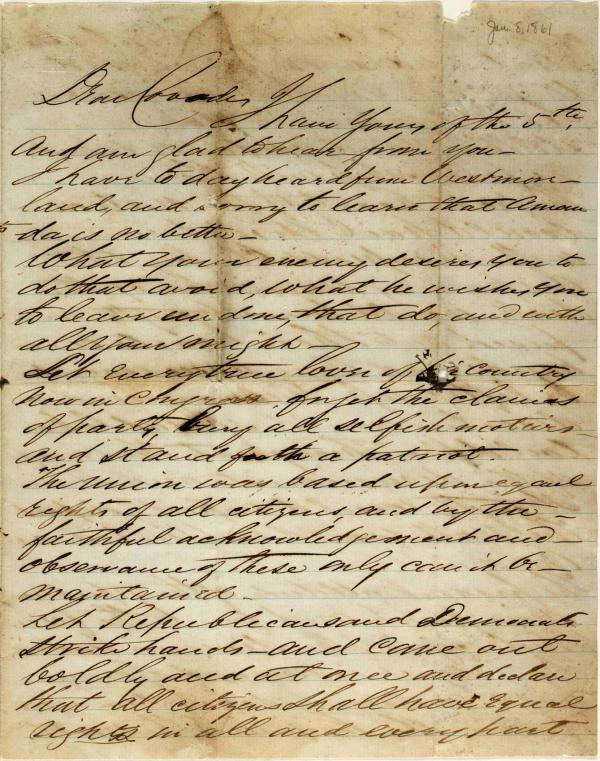 Jan. 8, 1861
Dear Covode, I
have yours of the 5th,
and am glad to hear from you—
I have to day heard from Westmore—
land, and sorry to learn that Aman
da is no better—
What your enemy desires you to
do that avoid, what he wishes you
to leave undone, that do, and with
all your might—
Let every true lover of his country
now in Congress forget the claims
of party, bury all selfish motives
and stand forth a patriot.
The Union was based upon equal
rights of all citizens, and by the—
faithful acknowledgement and—
observance of these only can it be—
maintained—
Let Republicans and Democrats
strike hands—and come out
boldly and at once and declare
that all citizens shall have equal
rights in all and every part